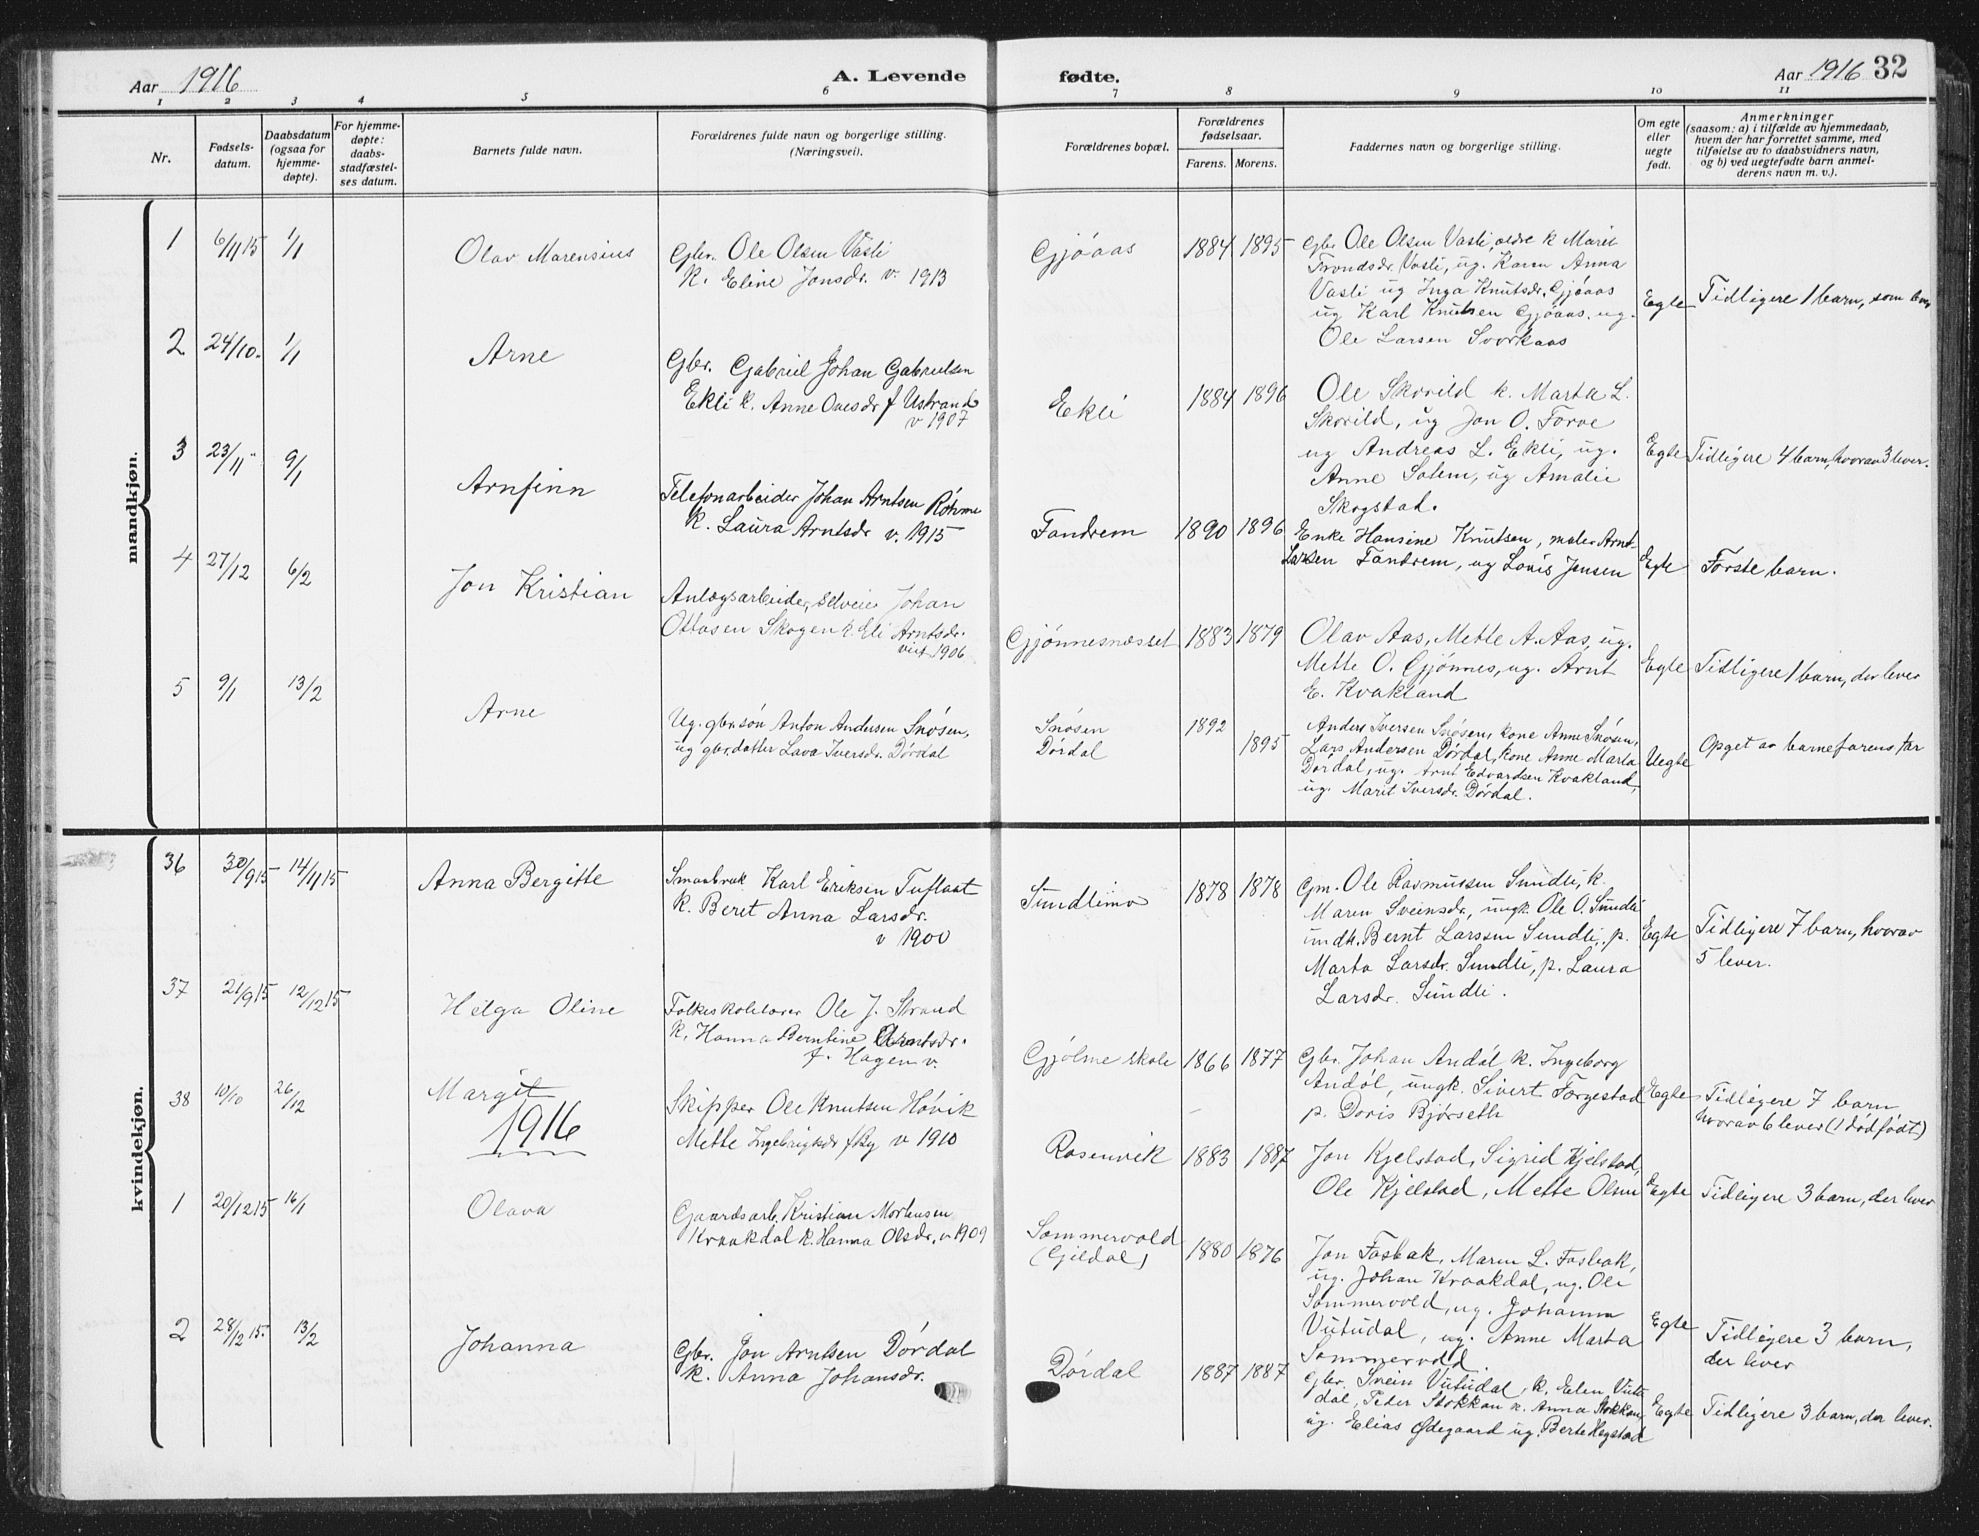 Aar 1916
A. Levende
fødte.
Aar 1916 32
1 2 3 4 5 6 7 8 9 10 11
Nr.
Fødsels-
datum.
Daabsdatum
(ogsaa for
hjemme-
døpte).
For hjemme-
døpte:
daabs-
stadfæstel-
ses datum.
Barnets fulde navn.
Forældrenes fulde navn og borgerlige stilling.
(Næringsvei).
Forældrenes bopæl.
Forældrenes
fødselsaar.
Farens. Morens.
Faddernes navn og borgerlige stilling.
Om egte
eller
uegte
født.
Anmerkninger
(saasom: a) i tilfælde av hjemmedaab,
hvem der har forrettet samme, med
tilføielse av to daabsvidners navn,
og b) ved uegtefødte barn anmel-
derens navn m. v.).
mandkjøn.
1 6/11 15 1/1 Olav Marensius
Gbr. Ole Olsen Vasli
k. Eline Jonsdr. v. 1913
Gjöaas 1884 1895
Gbr Ole Olsen Vasli, ældre k Marit
Trondsdr. Vasli, ug. Karen Anna
Vasli ug Inga Knutsdr. Gjöaas
ug Karl Knutsen Gjöaas, ug.
Ole Larsen Svorkaas
Egte
Tidligere 1 barn, som lever
2 24/10. 1/1 Arne
Gbr. Gabriel Johan Gabrielsen
Ekli k. Anne Onesdr f Ustrand
v 1907
Ekli 1884 1896
Ole Skorild k. Marta L.
Skorild, ug Jon O. Forve
ug Andreas L. Ekli, ug.
Anne Solem, ug Amalie
Skogstad.
Egte
Tidligere 4 barn, hvorav 3 lever.
3 23/11 9/1 Arnfinn
Telefonarbeider Johan Arntsen Röhme
k. Laura Arntsdr v. 1915
Fandrem 1890 1896
Enke Hansine Knutsen, maler Arnt
Larsen Fandrem, ug Lovis Jensen
Egte
Förste barn.
4 27/12 6/2 Jon Kristian
Anlægsarbeider, selveier Johan
Ottosen Skogen k. Eli Arntsdr.
viet 1906
Gjönnesnæsset 1883 1879
Olav Aas, Mette A. Aas, ug.
Mette O. Gjönnes, ug. Arnt
E. Kvakland
Egte
Tidligere 1 barn, der lever
5 9/1 13/2 Arne
Ug. gbr.sön Anton Andersen Snösen,
ug gbr.datter Lava Iversdr. Dördal
Snösen
Dördal
1892
1895
Anders Iversen Snösen, kone Anne Snösen,
Lars Andersen Dördal, kone Anne Marta
Dördal, ug. Arnt Edvardsen Kvakland,
ug. Marit Iversdr. Dördal.
Uegte
Opget av barnefarens far
kvindekjøn.
36 30/9 15 14/11 15 Anna Bergitte
Smaabruk Karl Eriksen Tuflaat
k. Beret Anna Larsdr.
v 1900
Sundlimo 1878 1878
Gm. Ole Rasmussen Sundli, k.
Maren Sveinsdr, ungk. Ole O. Sundli
Bernt Larssen Sundli, p.
Marta Larsdr. Sundli, p. Laura
Larsdr. Sundli.
Egte
Tidligere 7 barn, hvorav
5 lever.
37 21/9 15 12/12 15 Helga Oline
Folkeskolelærer Ole J. Strand
k. Hanna Berntine Arntsdr.
f. Hagen v.
Gjölme skole 1866 1877
Gbr. Johan Andöl k. Ingeborg
Andöl, ungk. Sivert Forgestad
p. Doris Bjørseth
Egte
Tidligere 7 barn
hvorav 6 lever (1 dödfödt)
38 10/10 26/12 Margit
1916
Skipper Ole Knutsen Hövik
Mette Ingebrigtsdr f By v 1910
Rosenvik 1883 1887
Jon Kjelstad, Sigrid Kjelstad,
Ole Kjelstad, Mette Olsen
Egte
Tidligere 3 barn, der lever
1 20/12 15 16/1 Olava
Gaardsarb. Kristian Mortensen
Kraakdal k. Hanna Olsdr, v 1909
Sommervold
(Gjeldal)
1880 1876
Jon Fosbak, Maren L. Fosbak,
ug. Johan Kraakdal, ug. Ole
Sommervold, ug. Johanna
Vutudal, ug. Anne Marta
Sommervold
Egte
Tidligere 3 barn,
der lever
2 28/12 15. 13/2 Johanna
Gbr. Jon Arntsen Dördal
k. Anna Johansdr.
Dördal 1887 1887
Gbr. Svein Vutudal, k. Elen Vutu
dal, Peder Stokkan k. Anna Stokkan,
ug. Elias Ødegaard ug. Berte Hogstad
Egte
Tidligere 3 barn, der lever.